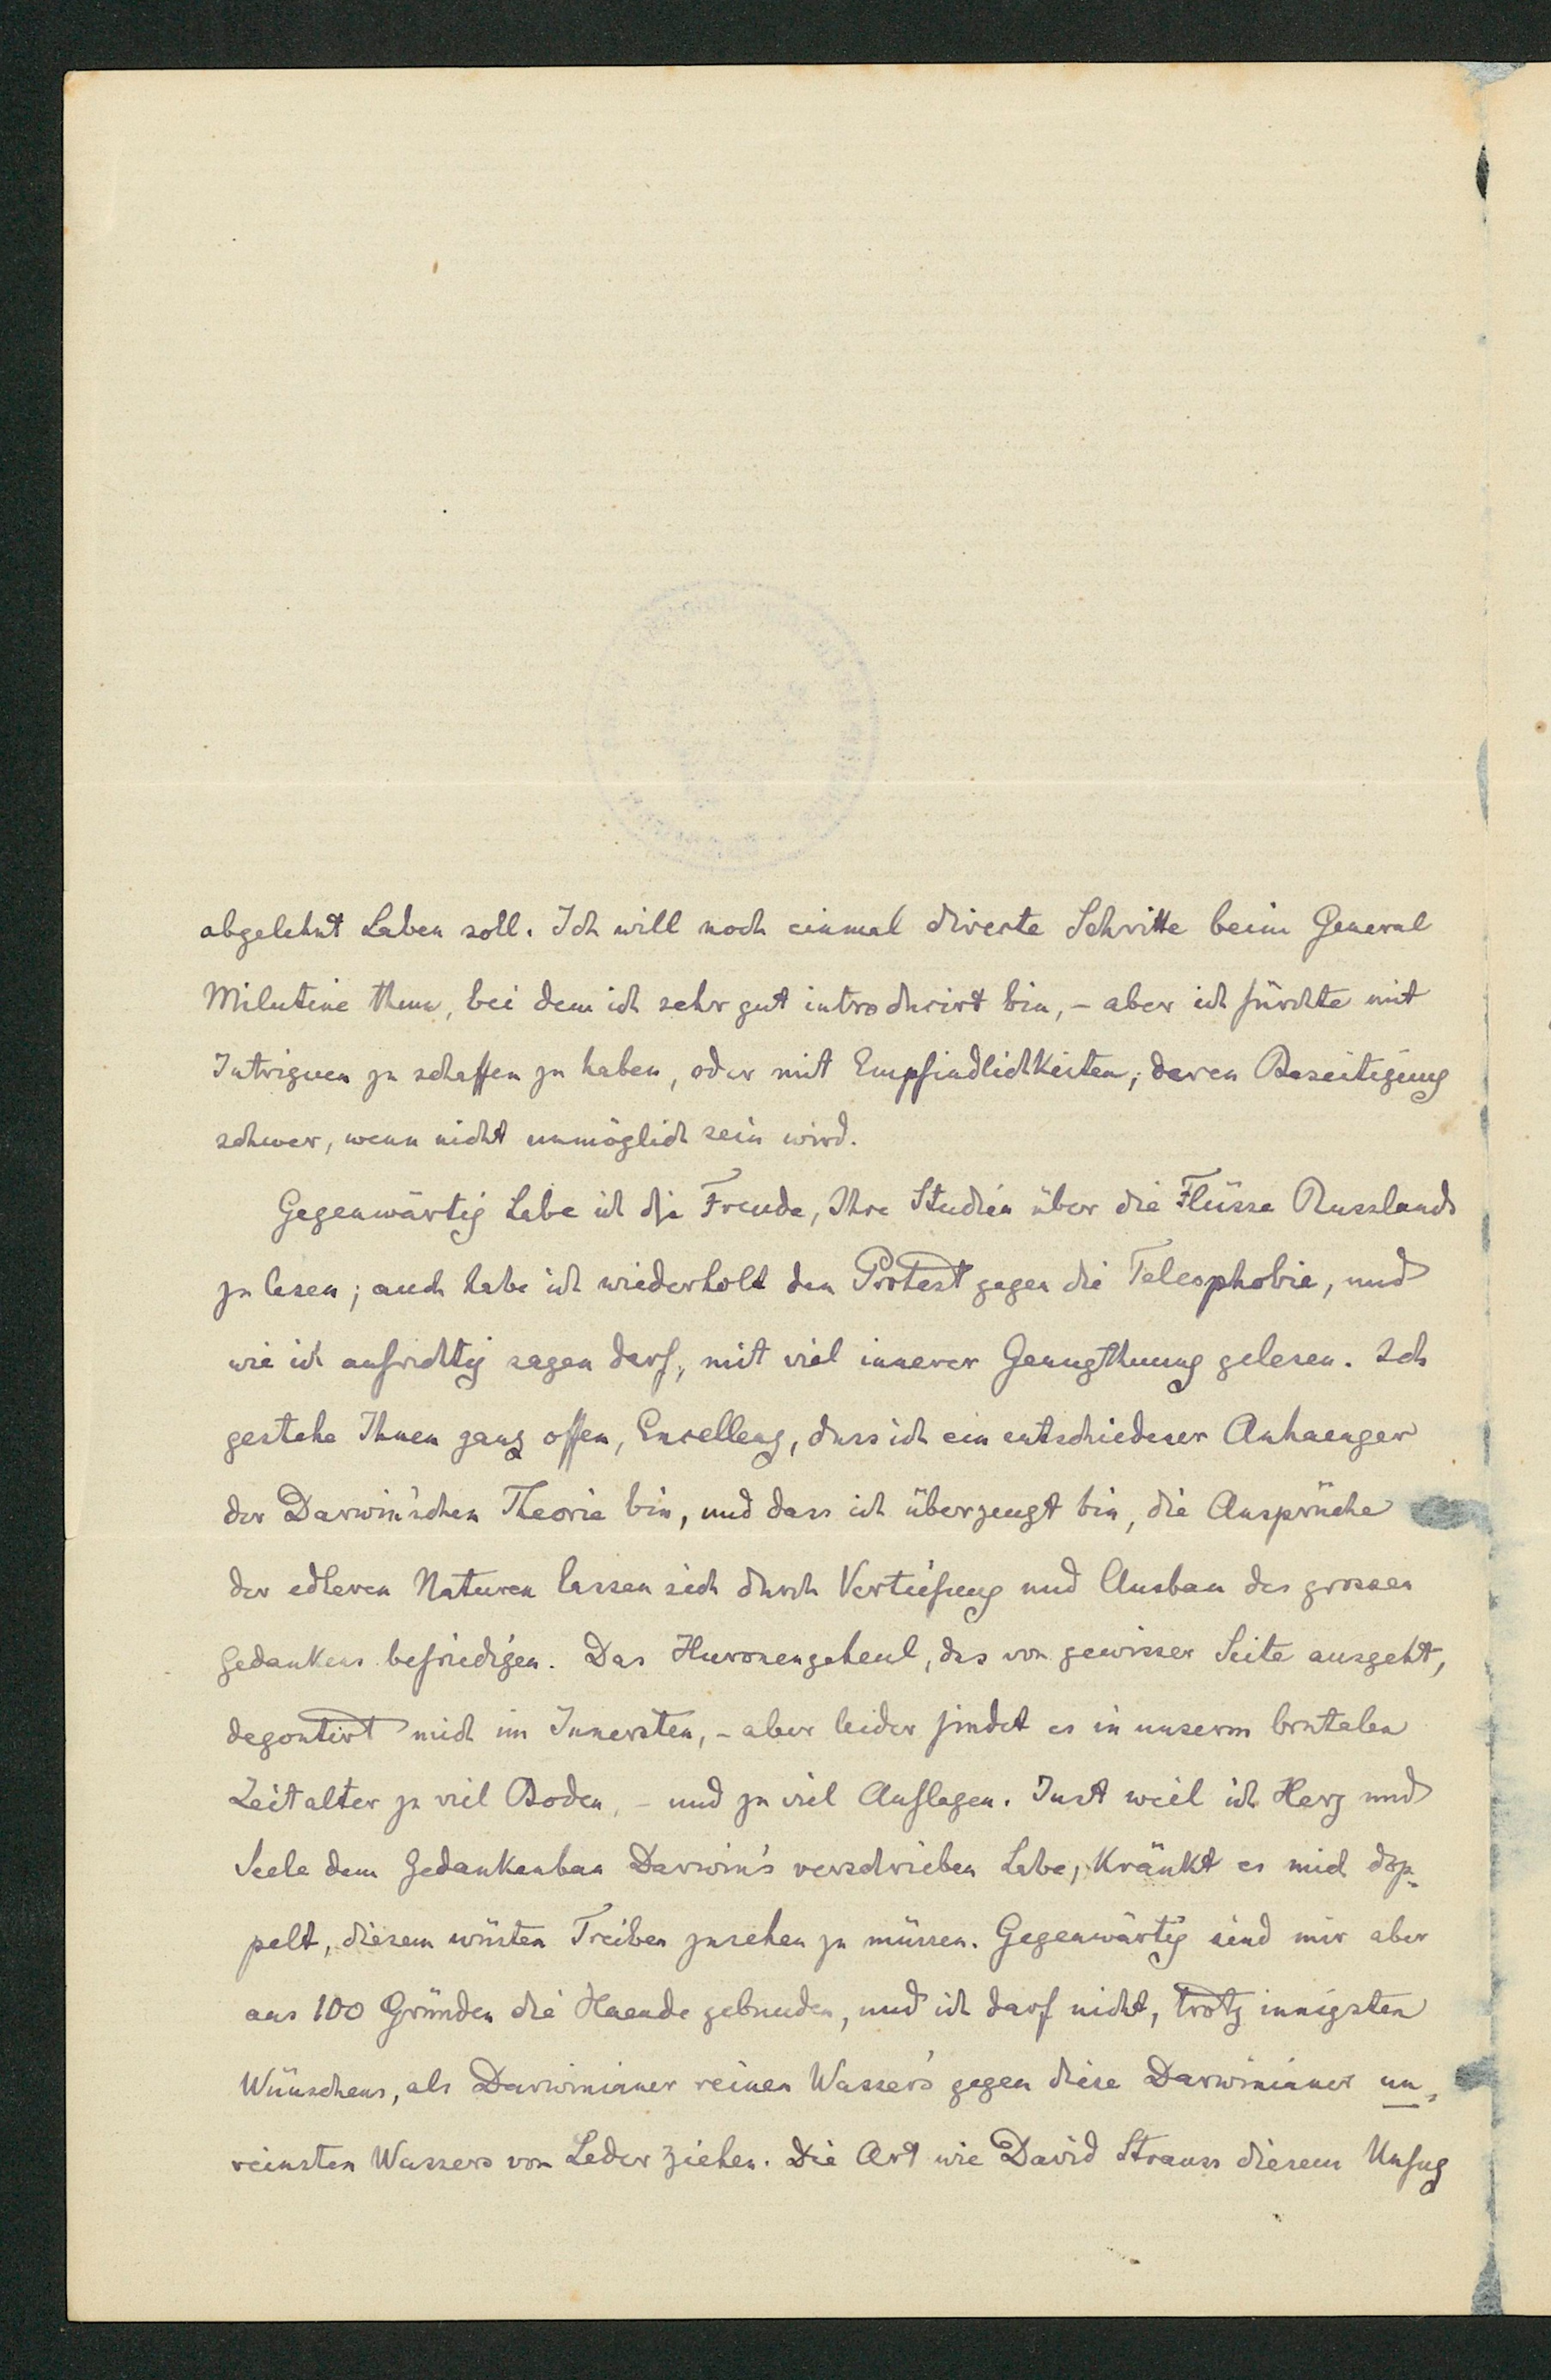 abgelehnt haben soll. Ich will noch einmal directe Schritte beim General
Milutine thun, bei dem ich sehr gut introducirt bin, – aber ich fürchte mit
Intriguen zu schaffen zu haben, oder mit Empfindlichkeiten, deren Beseitigung
schwer, wenn nicht unmöglich sein wird.
Gegenwärtig habe ich die Freude, Ihre Studien über die Flüsse Russlands
zu lesen; auch habe ich wiederholt den Protest gegen die Teleophobie, und
wie ich aufrichtig sagen darf, mit viel innerer Genugthuung gelesen. Ich
gestehe Ihnen ganz offen, Excellenz, dass ich ein entschiedener Anhaenger
der Darwin'schen Theorie bin, und dass ich überzeugt bin, die Ansprüche
der edleren Naturen lassen sich durch Vertiefung und Ausbau des grossen
Gedankens befriedigen. Das Huronengeheul, das von gewisser Seite ausgeht,
degoutirt mich im Innersten, – aber leider findet es in unserm brutalen
Zeitalter zu viel Boden, – und zu viel Auflagen. Just weil ich Herz und
Seele dem Gedankenbau Darwin's verschrieben habe, kränkt es mich dop-
pelt, diesem wüsten Treiben zusehen zu müssen. Gegenwärtig sind mir aber
aus 100 Gründen die Haende gebunden, und ich darf nicht, trotz innigsten
Wünschens, als Darwinianer reinen Wassers gegen diese Darwinianer un-
reinsten Wassers vom Leder ziehen. Die Art wie David Strauss diesem Unfug